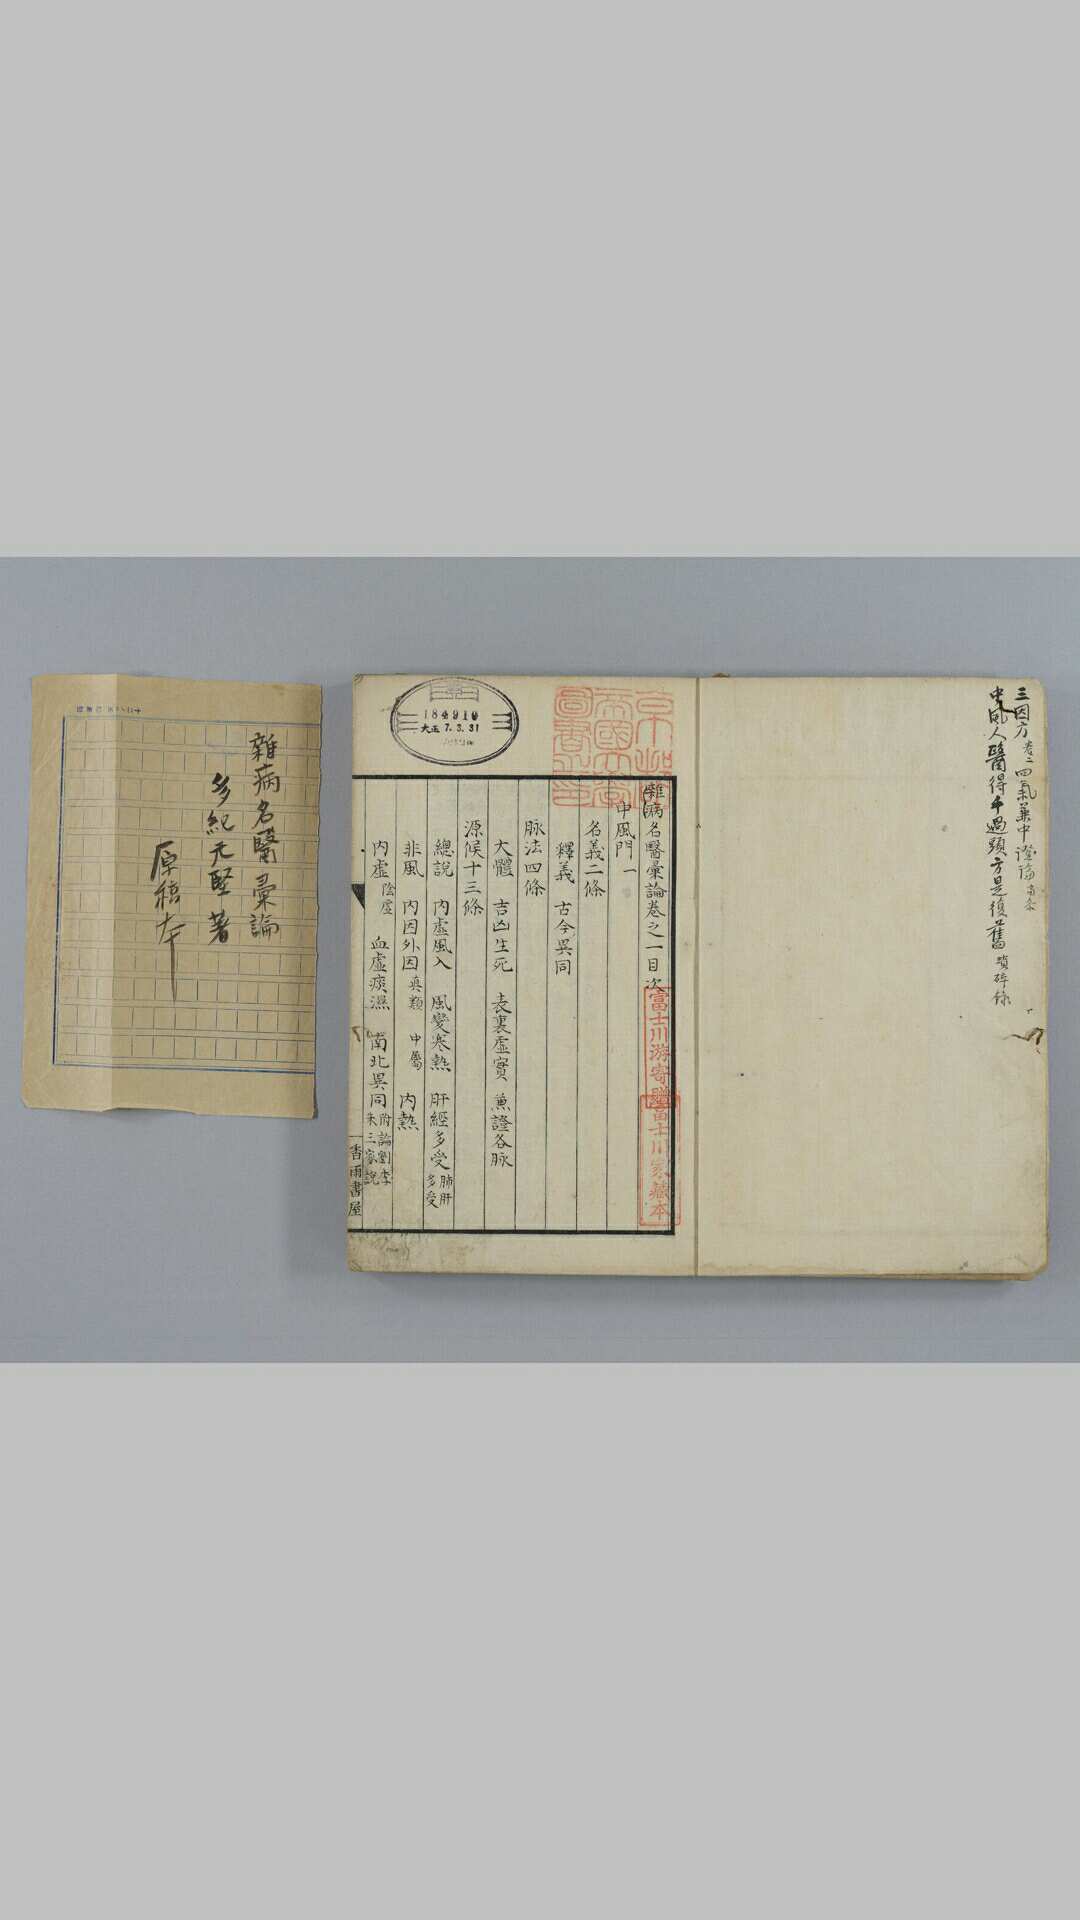 三因方卷二四氣兼中證論
中風人醫得手過頭方是復舊 瑣碎録
京都帝國大學圖書之印
184910
大正7.3.31
雜病名醫彙論卷之一目次
富士川游寄贈
富士川家藏本
中風門一
名義二條
釋義 古今異同
脉法四條
大體 吉凶生死 表裏虛實 兼證各脉
源候十三條
總說 內虛風入 風變寒熱 肝經多受 肺肝多受
非風 內因外因 真類 中屬 內熱
內虛 陰虛 血虛痰濕 南北異同 附論劉李朱三家說
香雨書屋
雜病名醫彙論
多紀元堅著
原稿本